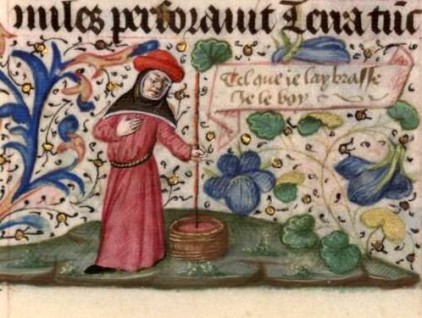 miles perforauit Terra tūc
Tel que ie lay brasse
Je le boy